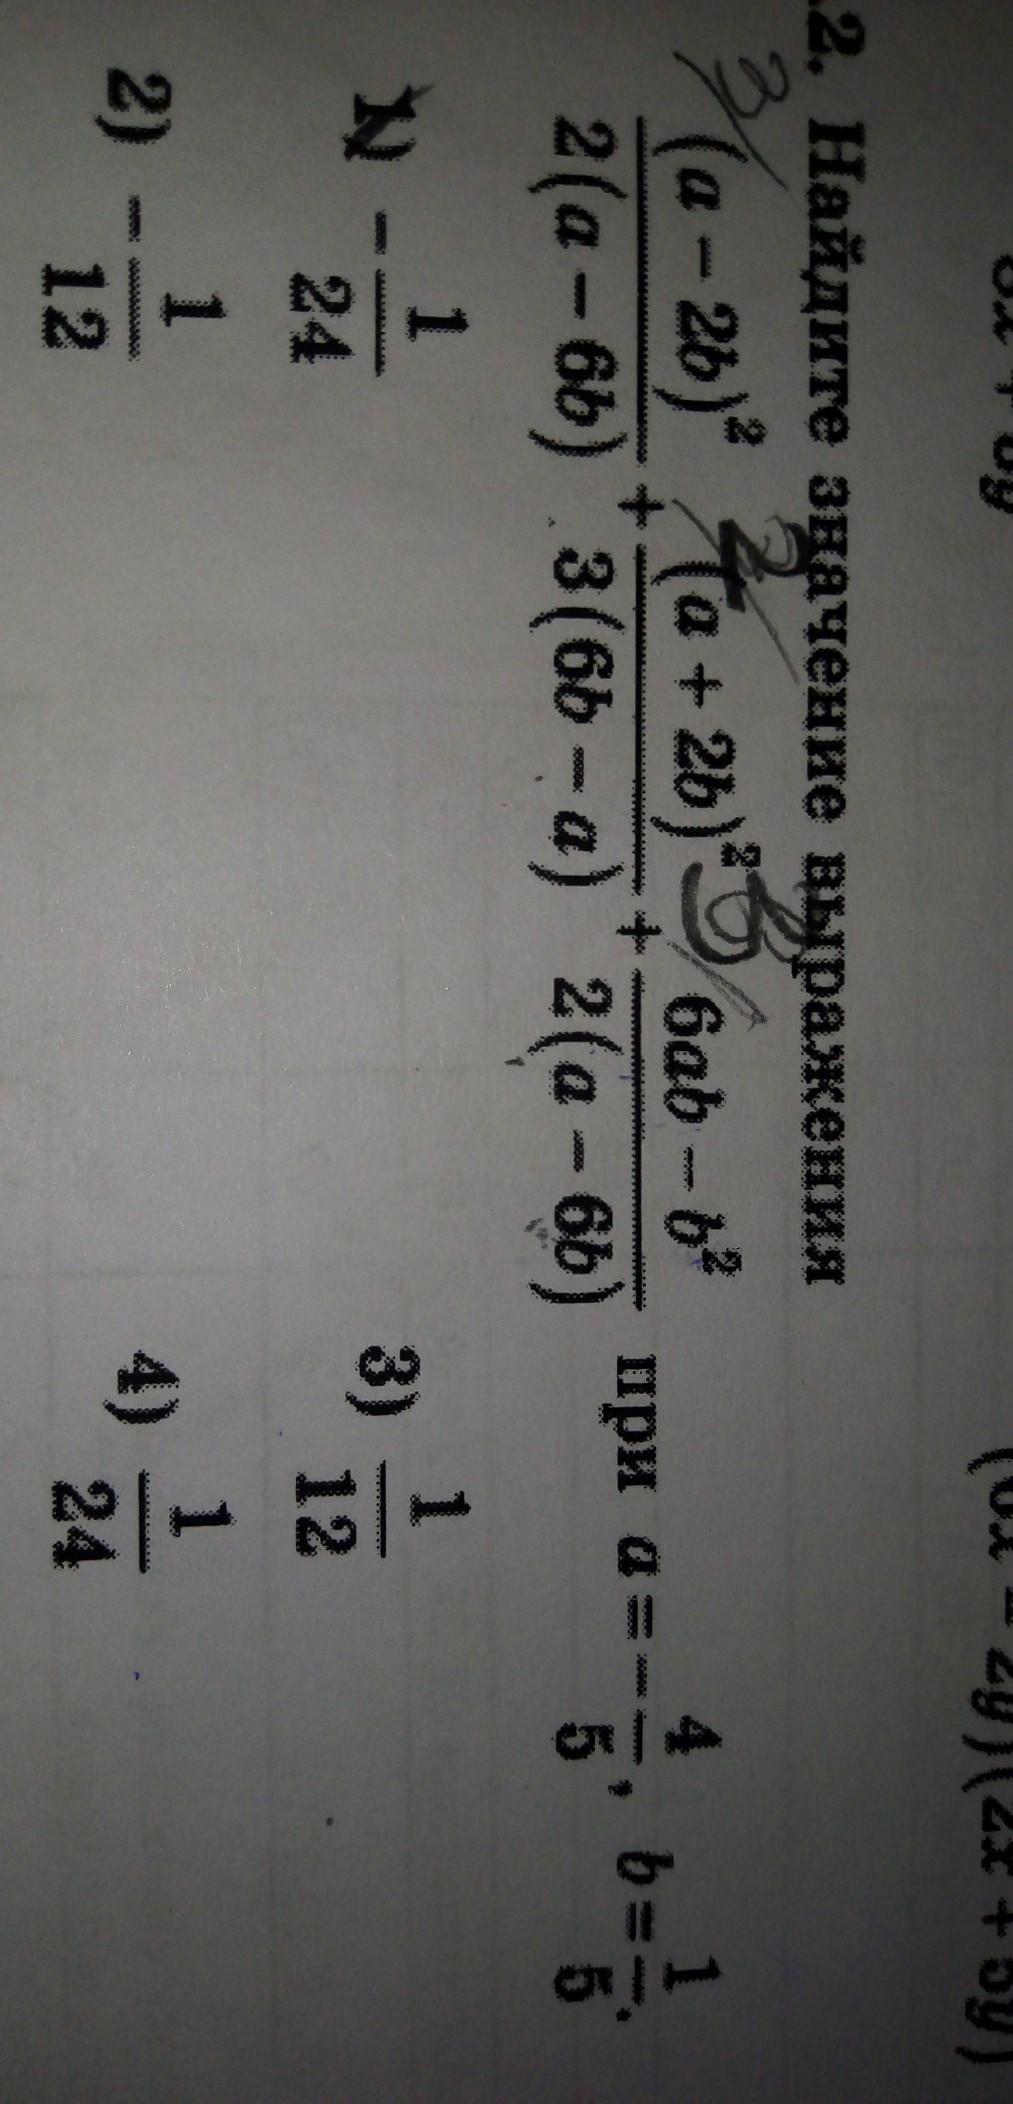 .2. Найдите значение выражения
3 2 3
(a − 2b)² / 2(a − 6b) + (a + 2b)² / 3(6b − a) + 6ab − b² / 2(a − 6b) при a = − 4/5, b = 1/5.
1) − 1/24 3) 1/12
2) − 1/12 4) 1/24